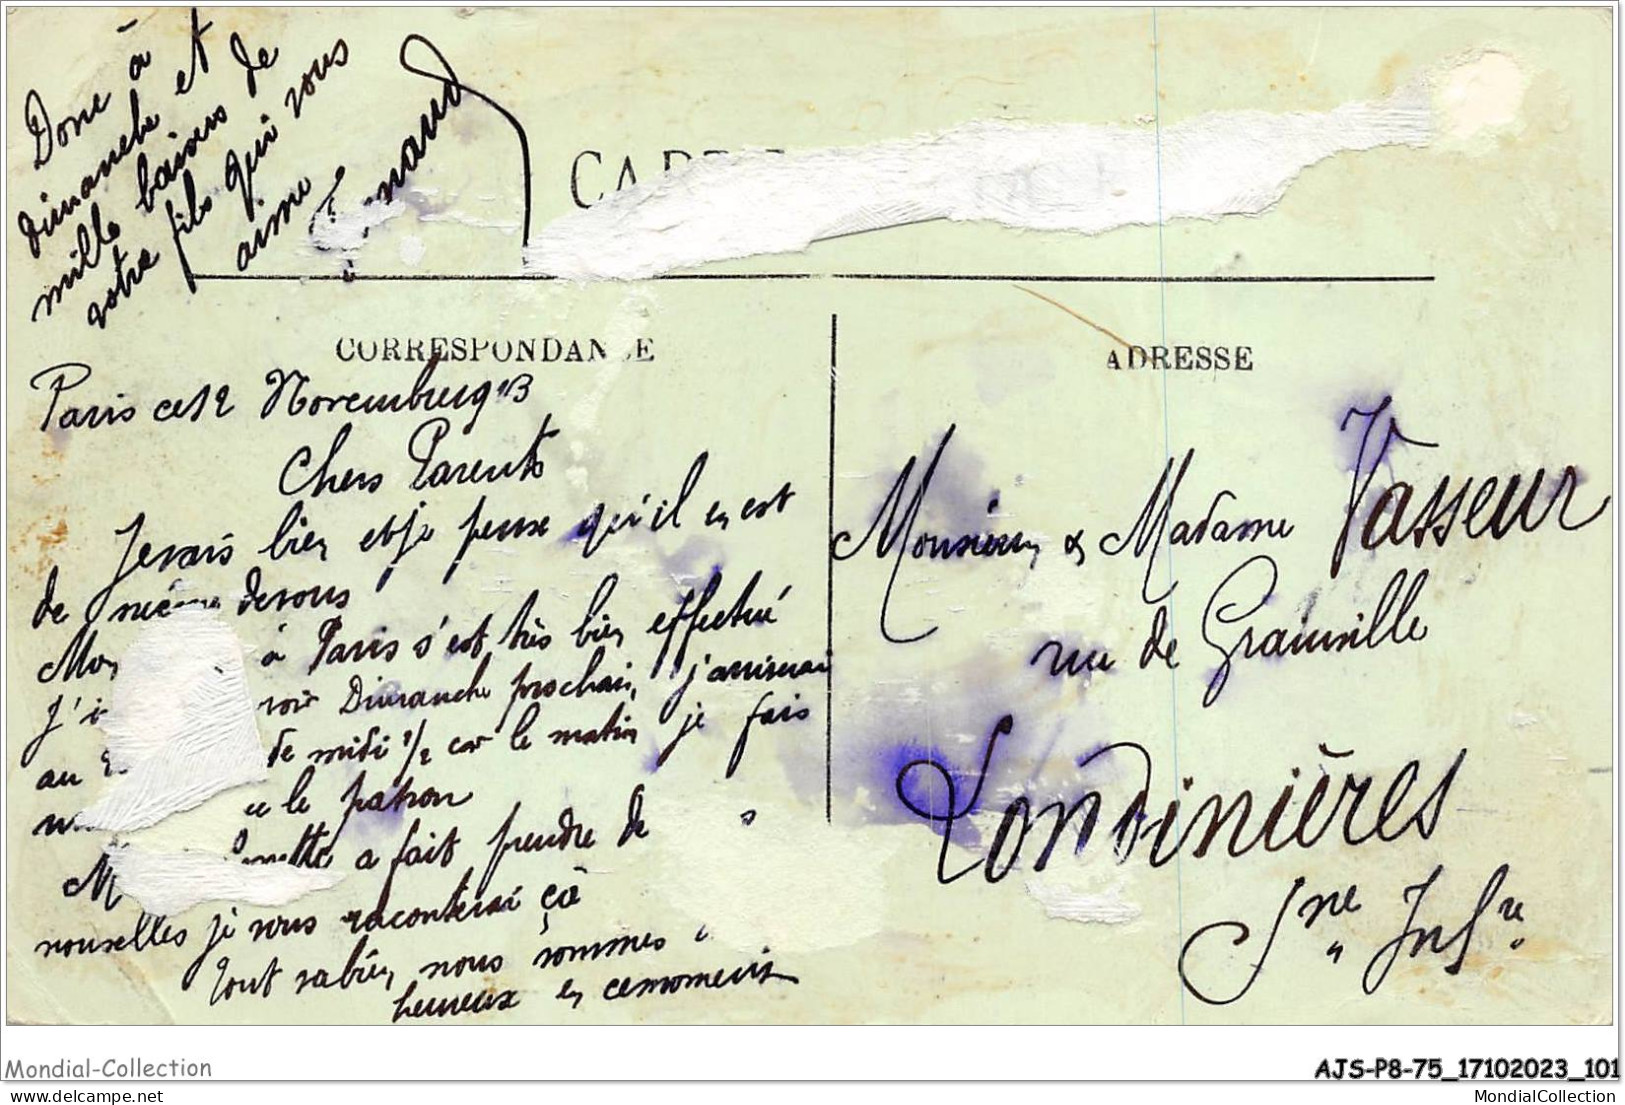 Donc à
dimanche et
mille baisers de
votre fils qui vous
aime
CORRESPONDANCE
Paris ce 12 Novembre 1913
Chers Parents
Je vais bien et je pense qu'il en est
de même de vous
Mon à Paris s'est très bien effectué
j'i voir Dimanche prochain, j'arriverai
au de midi 1/2 car le matin je fais
le patron
a fait prendre de
nouvelles je vous raconterai çà
Tout va bien, nous sommes
heureux en ce moment
ADRESSE
Monsieur & Madame Vasseur
rue de Grainville
Londinières
Sne Infre
Mondial-Collection
AJS-P8-75_17102023_101
www.delcampe.net
MondialCollection